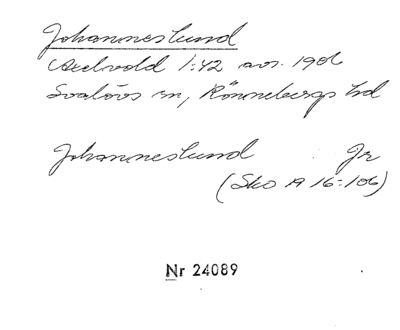 Johanneslund
Axelvold 1:42 avs. 1906
Svalövs sn, Rönnebergs hd
Johanneslund Jr
(Sko A 16:106)
Nr 24089